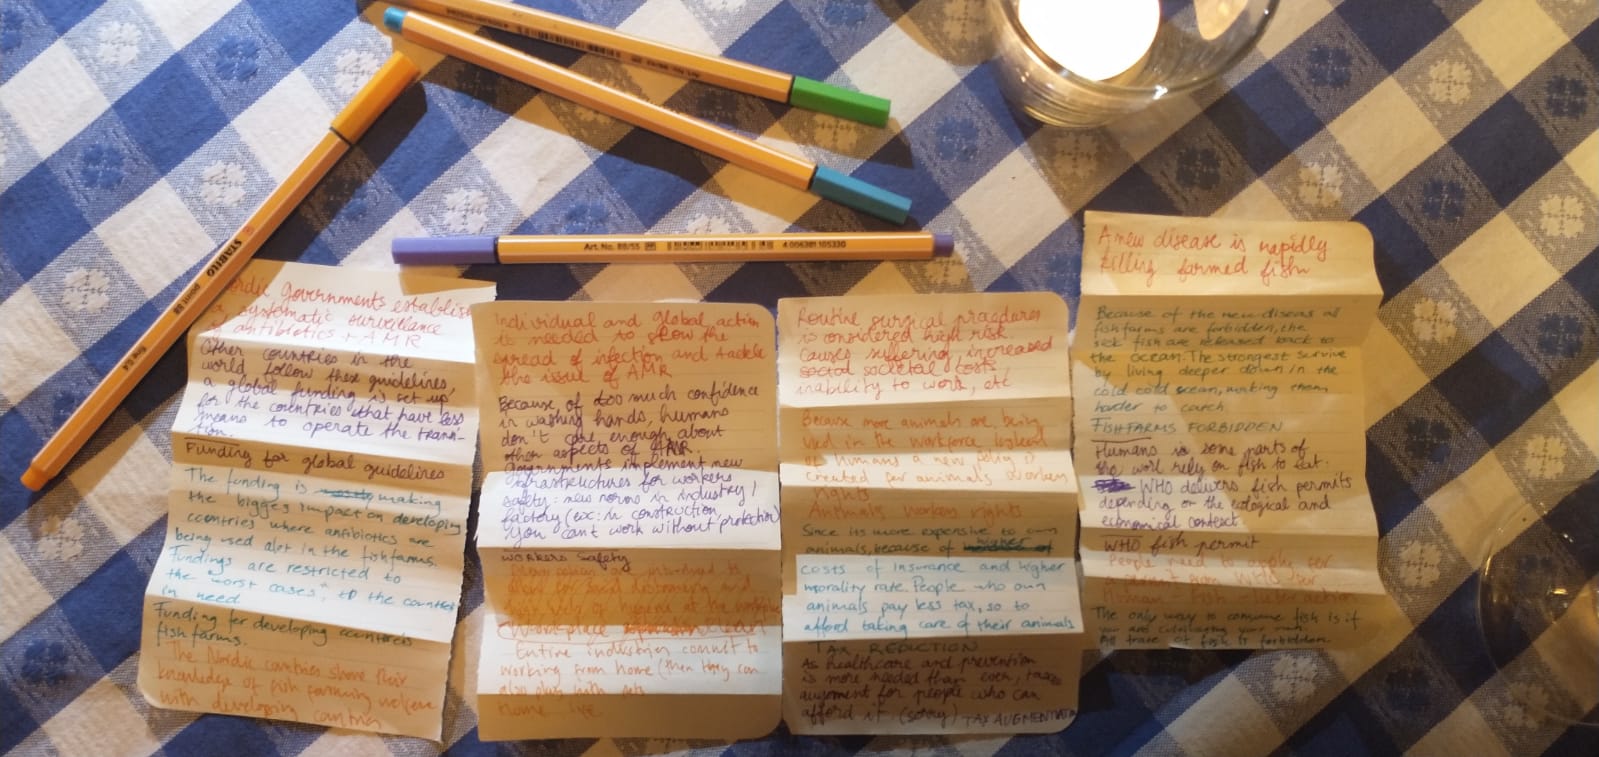 STABILO
point 88
fine 0,4
Art. No. 88/55
4 006381 105330
Nordic Governments establish
a systematic surveillance
of antibiotics + AMR
Other countries in the
world follow these guidelines,
a global funding is set up
for the countries that have less
means to operate the transi-
tion.
Funding for global guidelines
The funding is mostly making
the bigges impact on developing
countries where antibiotics are
being used alot in the fishfarms.
Fundings are restricted to
the "worst cases", to the countries
in need.
Funding for developing countries
fishfarms.
The Nordic countries share their
knowledge of fish farming welfare
with developing countries
Individual and global action
is needed to slow the
spread of infection and tackle
the issue of AMR
Because of too much confidence
in washing hands, humans
don't care enough about
other aspects of AMR.
Governments implement new
infrastructures for workers
safety: new norms in industry/
factory (ex: in construction,
you can't work without protection)
WORKERS SAFETY
allow for social distancing and
high levels of hygiene at the workplace
Workplace
Entire industries commit to
working from home (then they can
also play with pets
Home life
Routine surgical praedures
is considered high risk.
Causes suffering, increased
social societal costs,
inability to work, etc
Because more animals are being
used in the workforce instead
of humans a new policy is
created for animals workers
rights
Animals workers rights
Since its more expensive to own
animals, because of higher
costs of insurance and higher
morality rate. People who own
animals pay less tax, so to
afford taking care of their animals
TAX REDUCTION
As healthcare and prevention
is more needed than ever, taxes
augment for people who can
afford it. (sorry) TAX AUGMENTATION
A new disease is rapidly
killing farmed fish
Because of the new diseas al
fishfarms are forbidden, the
sick fish are released back to
the ocean. The strongest survive
by living deeper down in the
cold cold ocean, making them
harder to catch.
FISHFARMS FORBIDDEN
Humans in some parts of
the worl rely on fish to eat.
WHO delivers fish permits
depending on the ecological and
economical context
WHO fish permit
People need to apply for
a permit from WHO for
Human - Fish - interaction
The only way to consume fish is if
you are cultivating your own.
All trade of fish is forbidden.